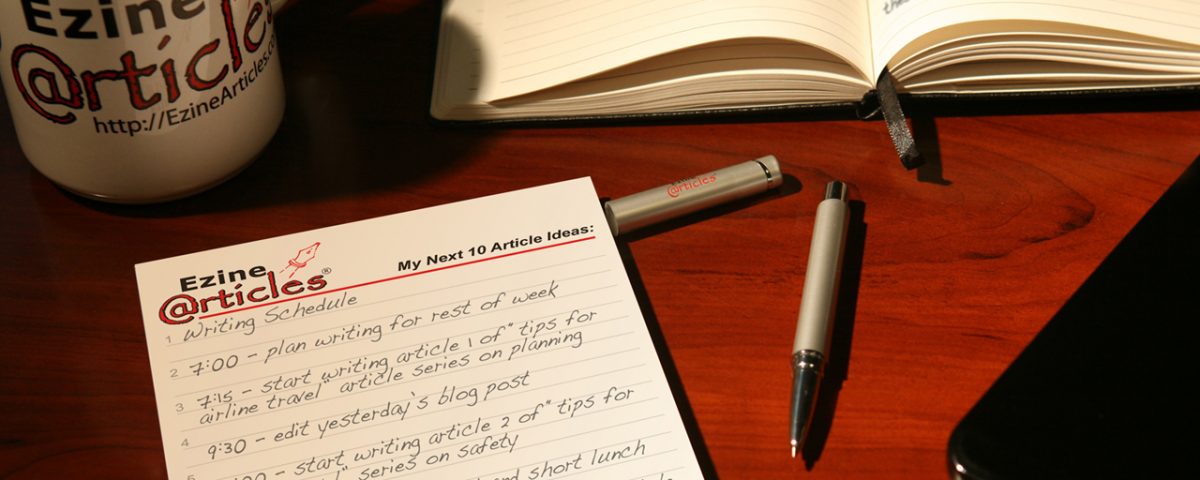 Ezine
@rticles
http://EzineArticles.co
@rticles
Ezine
@rticles®
My Next 10 Article Ideas:
Writing Schedule
1
7:00 - plan writing for rest of week
2
7:15 - start writing article 1 of "tips for
airline travel" article series on planning
3
9:30 - edit yesterday's blog post
4
00 - start writing article 2 of "tips for
l" series on safety
5
and short lunch